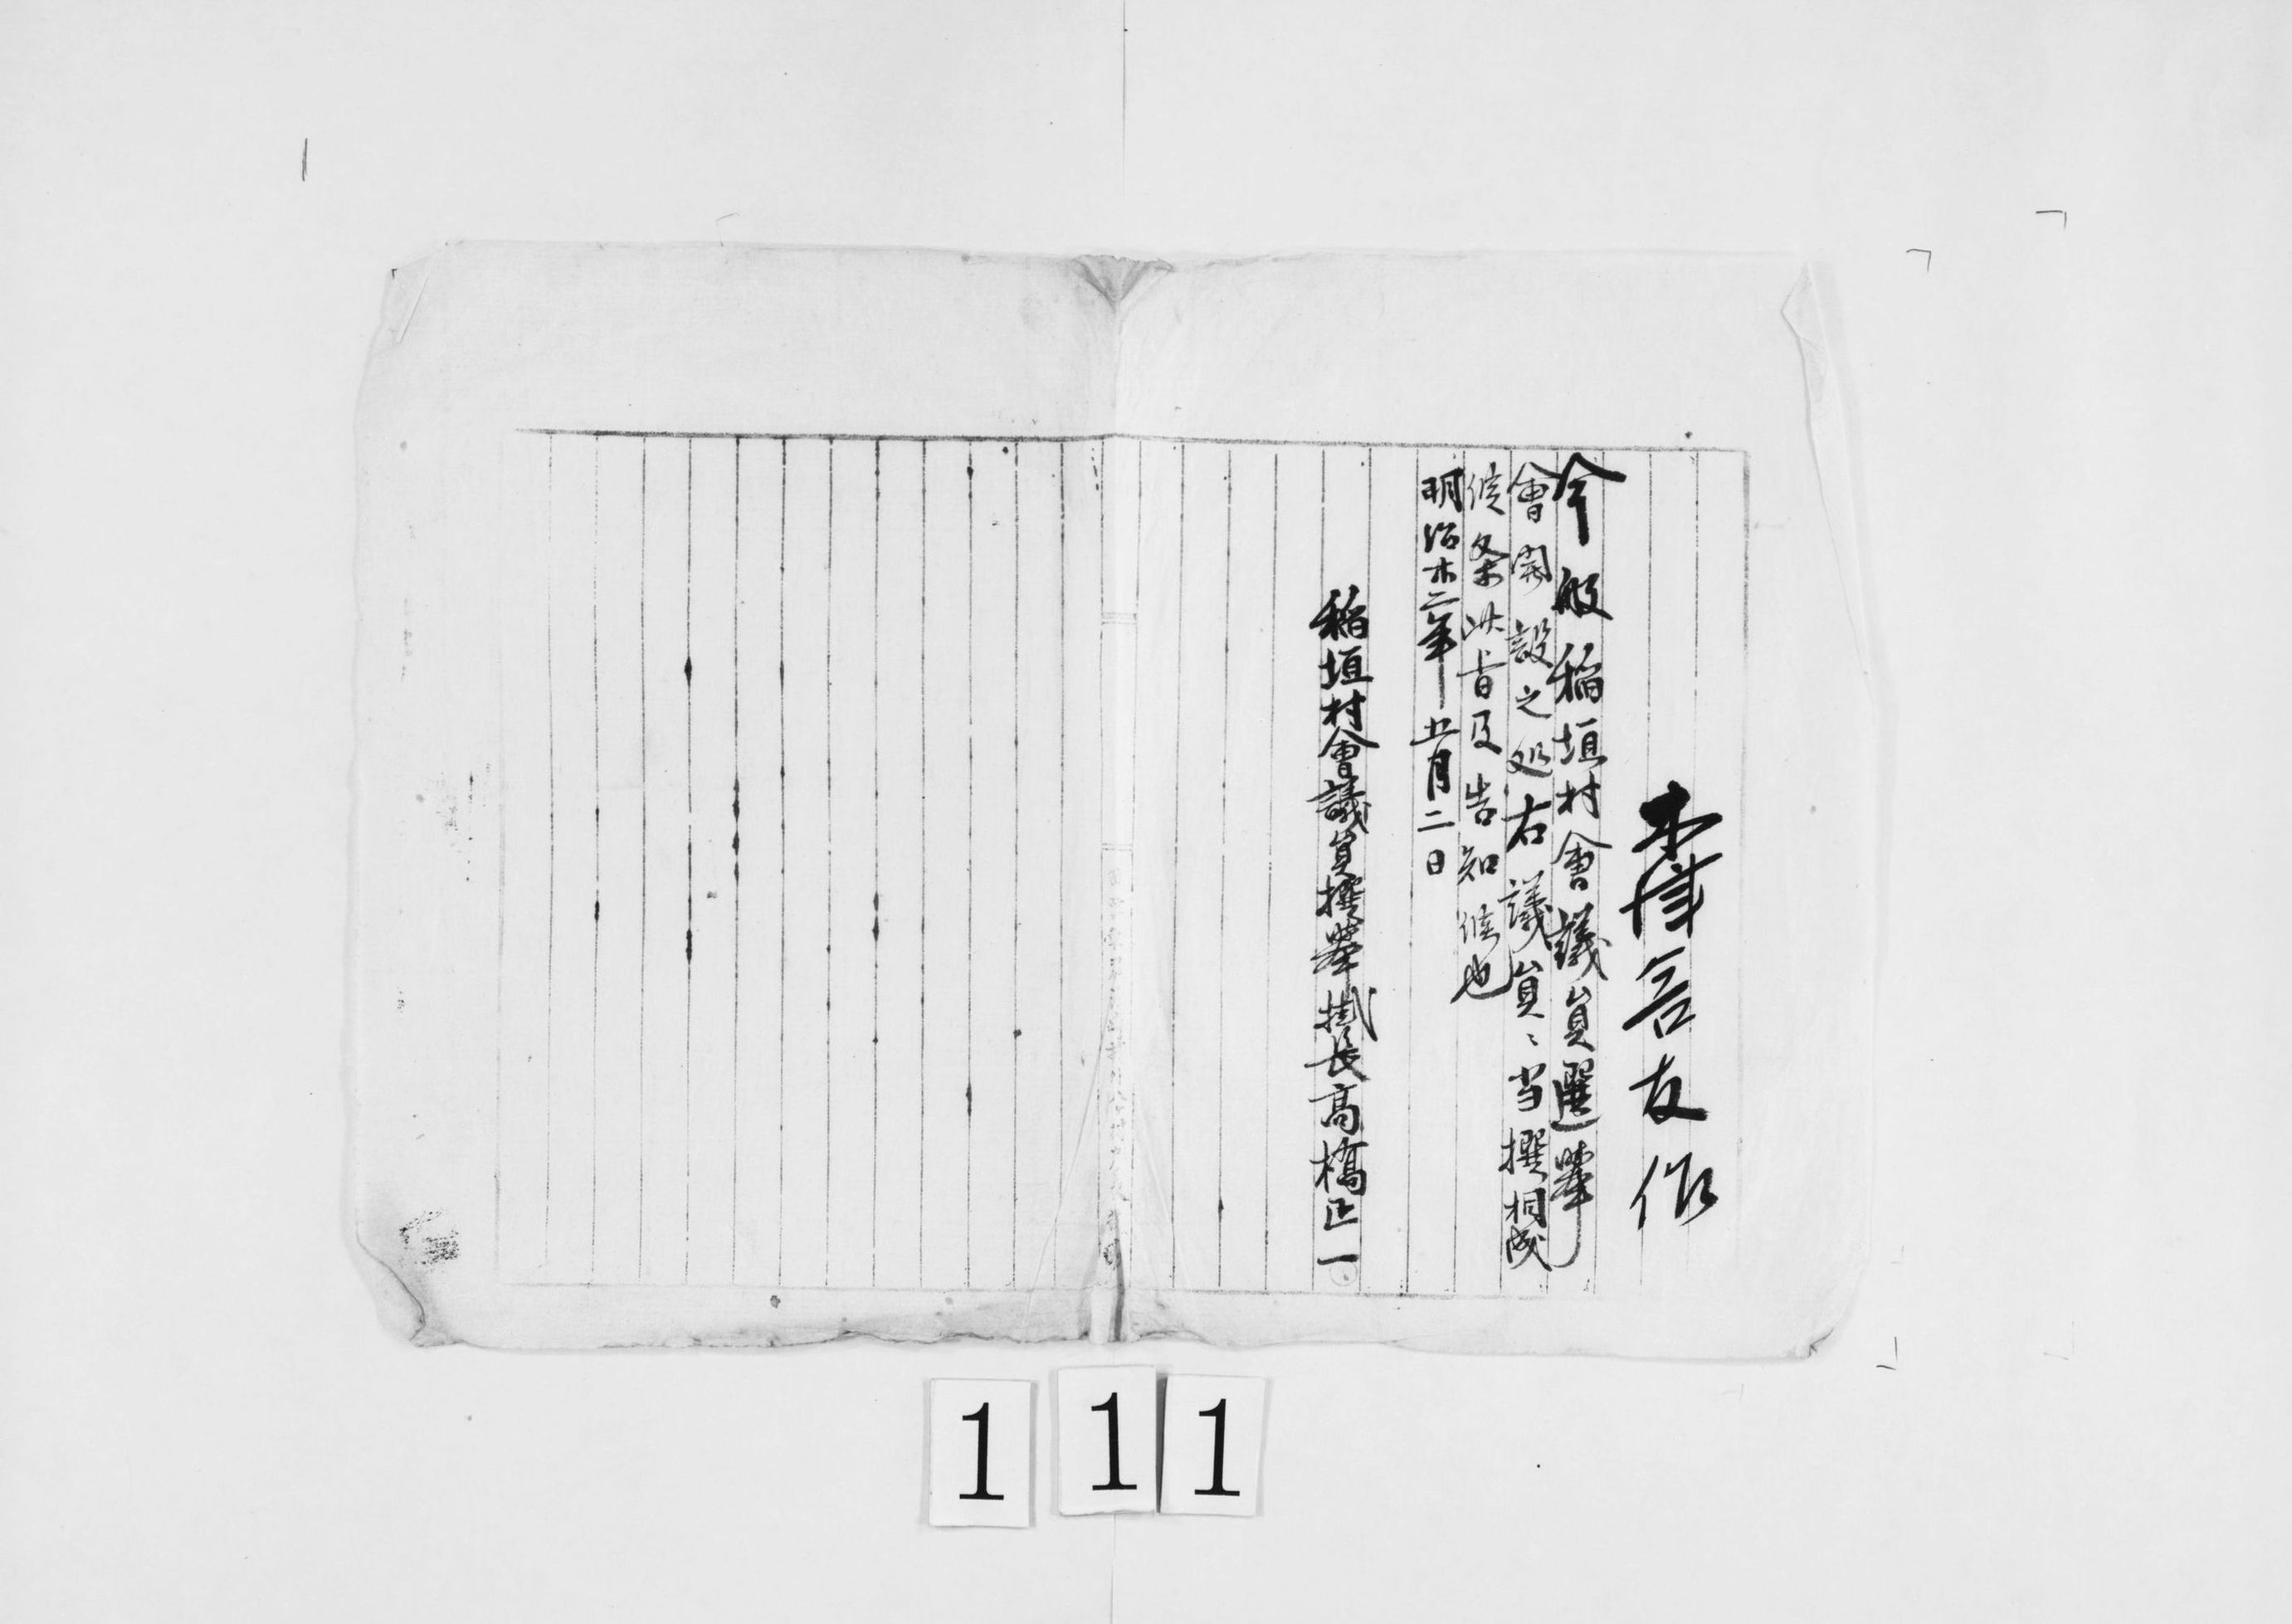 本澤言友作
今般稲垣村會議員選挙
會開設之処右議員ミ当撰相成
候条此旨及告知候也
明治廿二年五月二日
稲垣村會議員撰挙掛長高橋正一
1 1 1